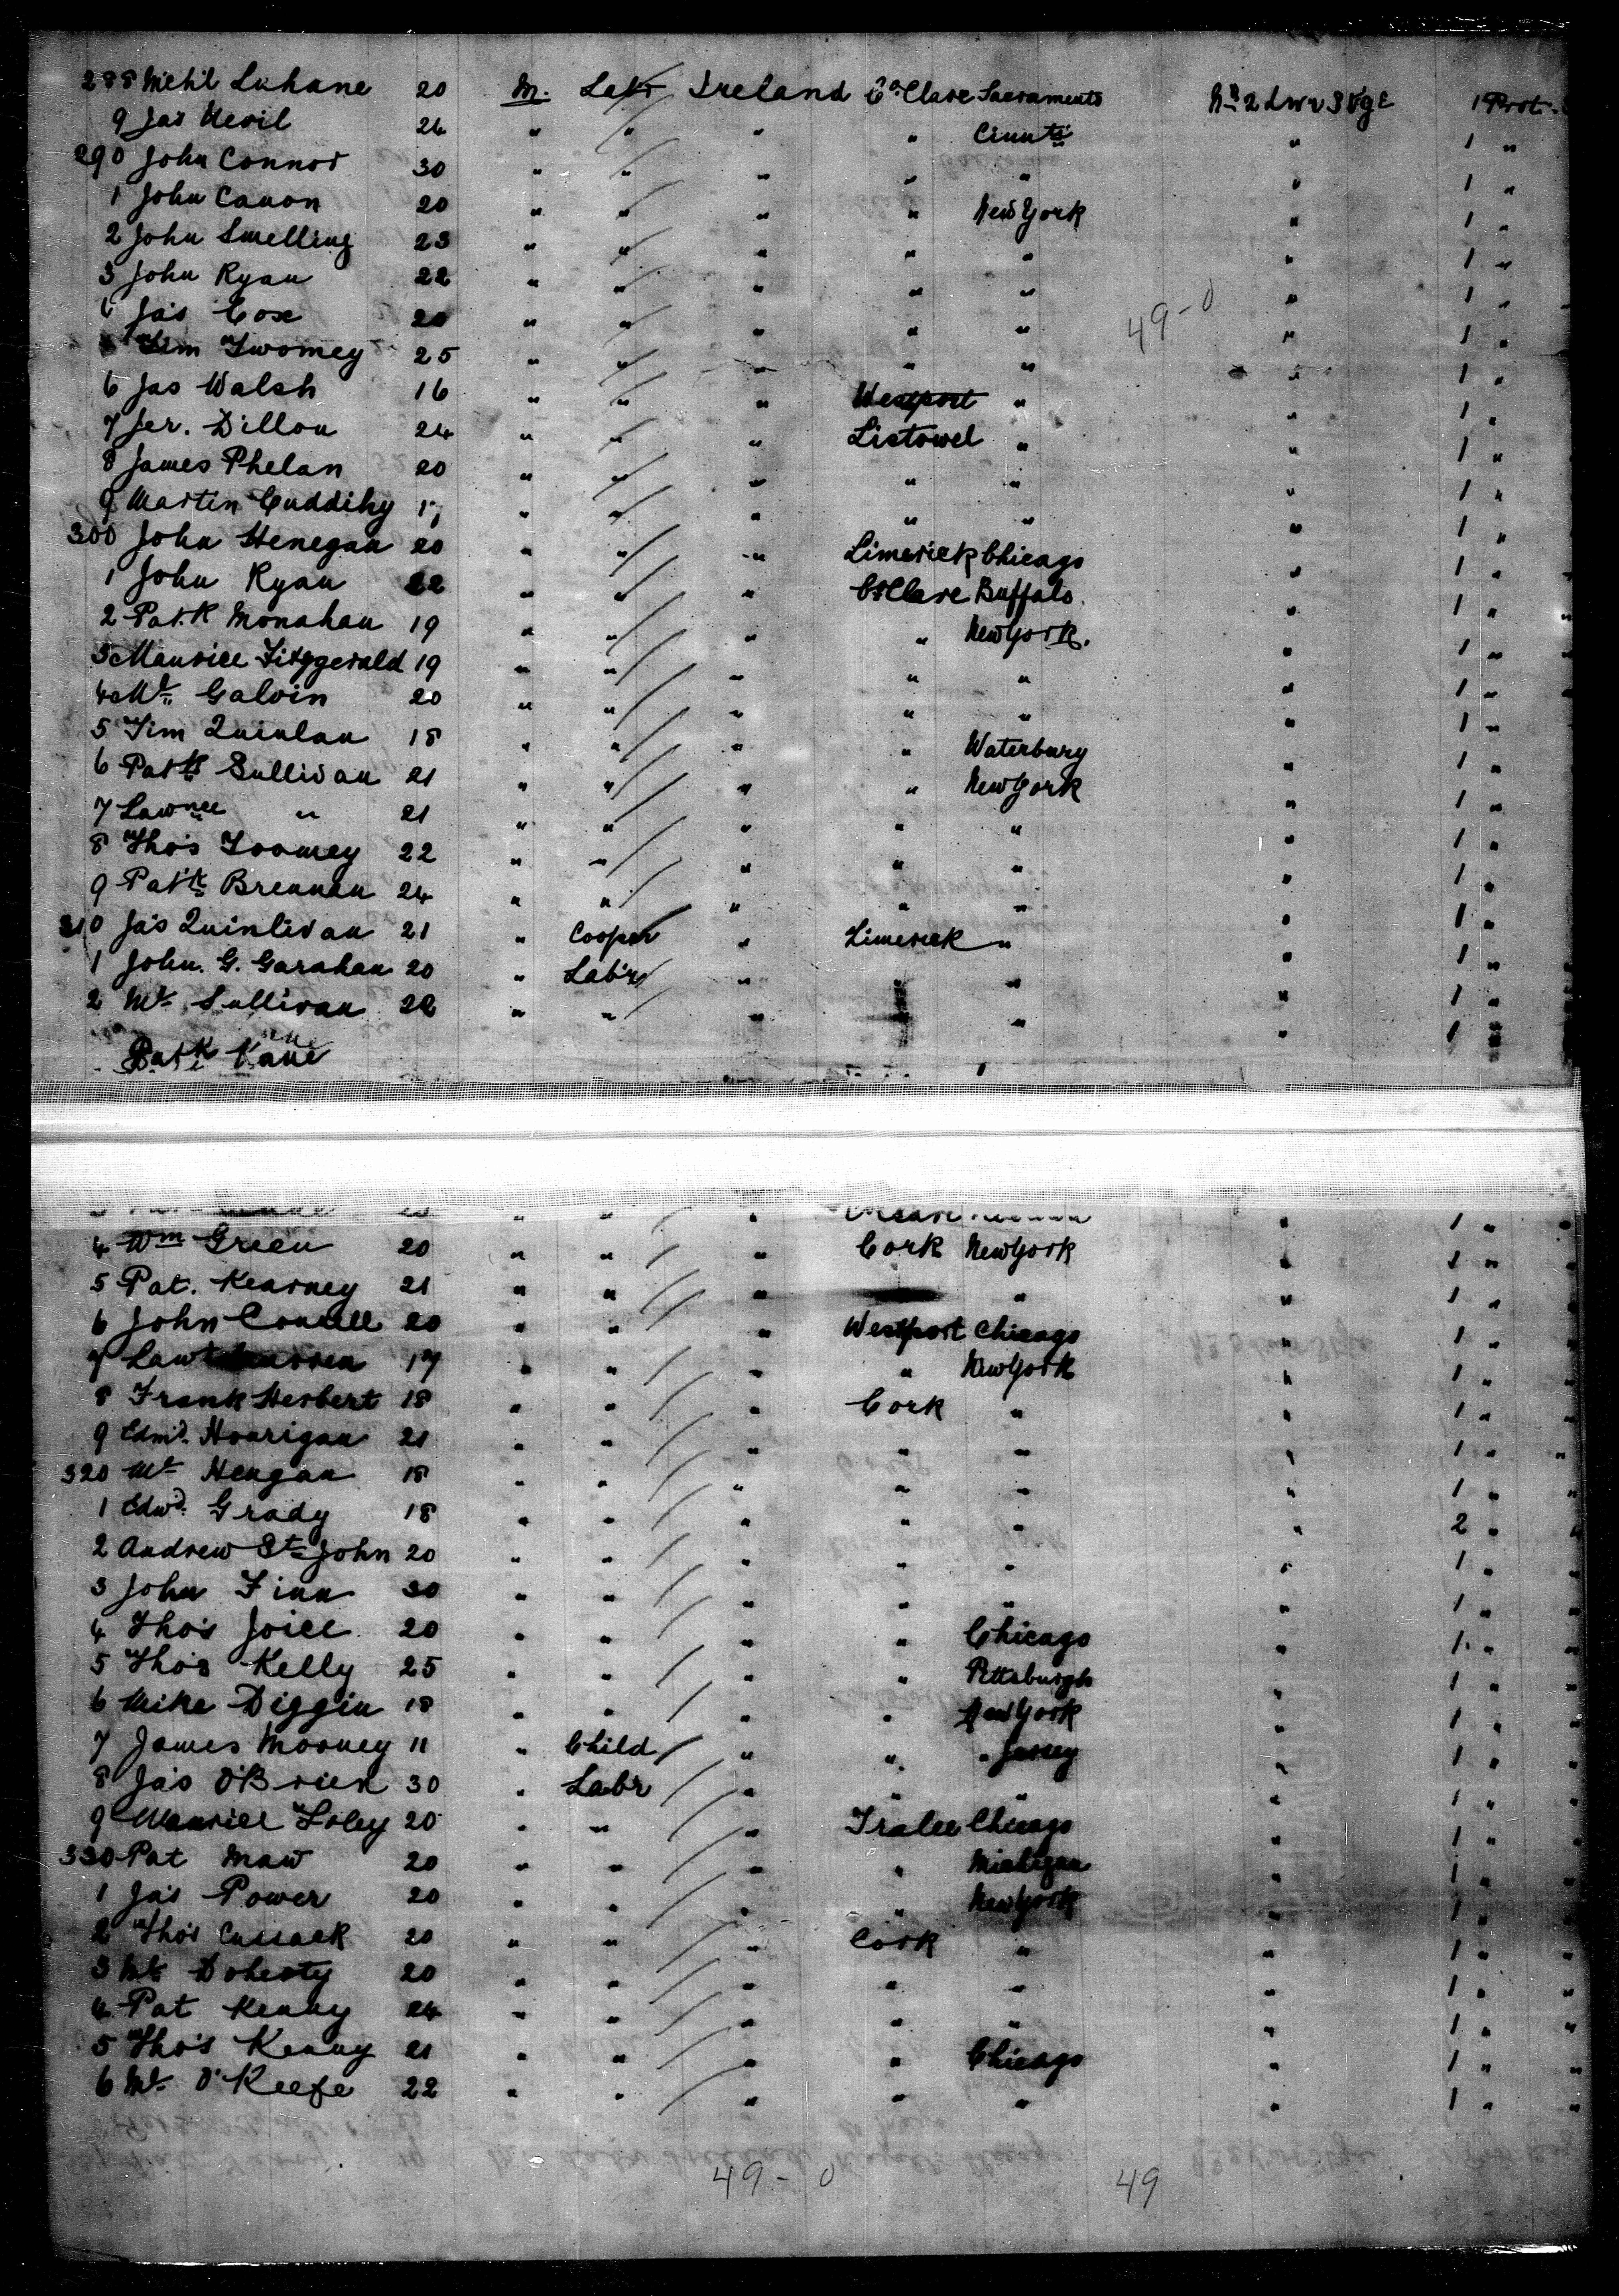 288 Mich'l Luhane 20 M. Labr Ireland Co. Clare Sacramento No 2 Lwr Stge 1 Prot.
9 Jas Nevil 24 " " " " Cinnti " 1 "
290 John Connor 30 " " " " " " 1 "
1 John Canon 20 " " " " New York " 1 "
2 John Smelling 23 " " " " " " 1 "
3 John Ryan 22 " " " " " " 1 "
49-0
4 Jas Cox 20 " " " " " " 1 "
Tim Twomey 25 " " " " " " 1 "
6 Jas Walsh 16 " " " Westport " " 1 "
7 Jer. Dillon 24 " " " Listowel " " 1 "
8 James Phelan 20 " " " " " " 1 "
9 Martin Cuddihy 17 " " " " " " 1 "
300 John Henegan 20 " " " Limerick Chicago " 1 "
1 John Ryan 22 " " " Co Clare Buffalo " 1 "
2 Pat.k Monahan 19 " " " " New York. " 1 "
3 Maurice Fitzgerald 19 " " " " " " 1 "
4 Mt. Galvin 20 " " " " " " 1 "
5 Tim Quinlan 18 " " " " Waterbury " 1 "
6 Patk Sullivan 21 " " " " New York " 1 "
7 Lawnce " 21 " " " " " " 1 "
8 Thos Toomey 22 " " " " " " 1 "
9 Patk Brennan 24 " " " " " " 1 "
310 Jas Quinlivan 21 " Cooper " Limerick " " 1 "
1 John. G. Garahan 20 " Lab'r " " " " 1 "
2 Mt Sullivan 22 " " " " " " 1 "
Patk Kane
4 Wm Green 20 " " " Cork New York " 1 "
5 Pat. Kearney 21 " " " " " 1 "
6 John Connell 20 " " " Westport Chicago " 1 "
7 Law 17 " " " " New York " 1 "
8 Frank Herbert 18 " " " Cork " " 1 "
9 Edmd. Hourigan 21 " " " " " " 1 "
320 Mt Hengan 18 " " " " " " 1 "
1 Edwd. Grady 18 " " " " " " 2 "
2 Andrew St John 20 " " " " " " 1 "
3 John Finn 30 " " " " " " 1 "
4 Thos Joice 20 " " " " Chicago " 1 "
5 Thos Kelly 25 " " " " Pittsburgh " 1 "
6 Mike Diggin 18 " " " " New York " 1 "
7 James Mooney 11 " Child " " " Jersey " 1 "
8 Jas O'Brien 30 " Labr " " " " 1 "
9 Maurice Foley 20 " " " Tralee Chicago " 1 "
330 Pat Maw 20 " " " " Michigan " 1 "
1 Jas Power 20 " " " " New York " 1 "
2 Thos Cussack 20 " " " Cork " " 1 "
3 Mt Doherty 20 " " " " " " 1 "
4 Pat Kenny 24 " " " " " " 1 "
5 Thos Kenny 21 " " " " Chicago " 1 "
6 Mt O'Keefe 22 " " " " " 1 "
49-0 49